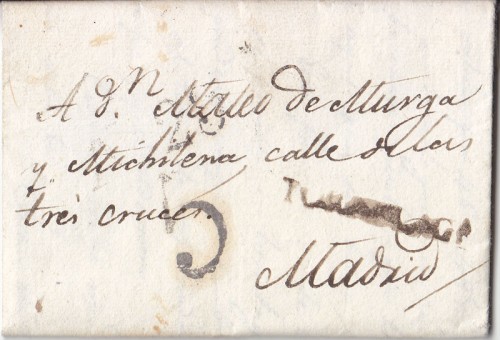 A dⁿ. Mateo de Murga
y Michilena, calle de las
tres cruces.
5
Madrid